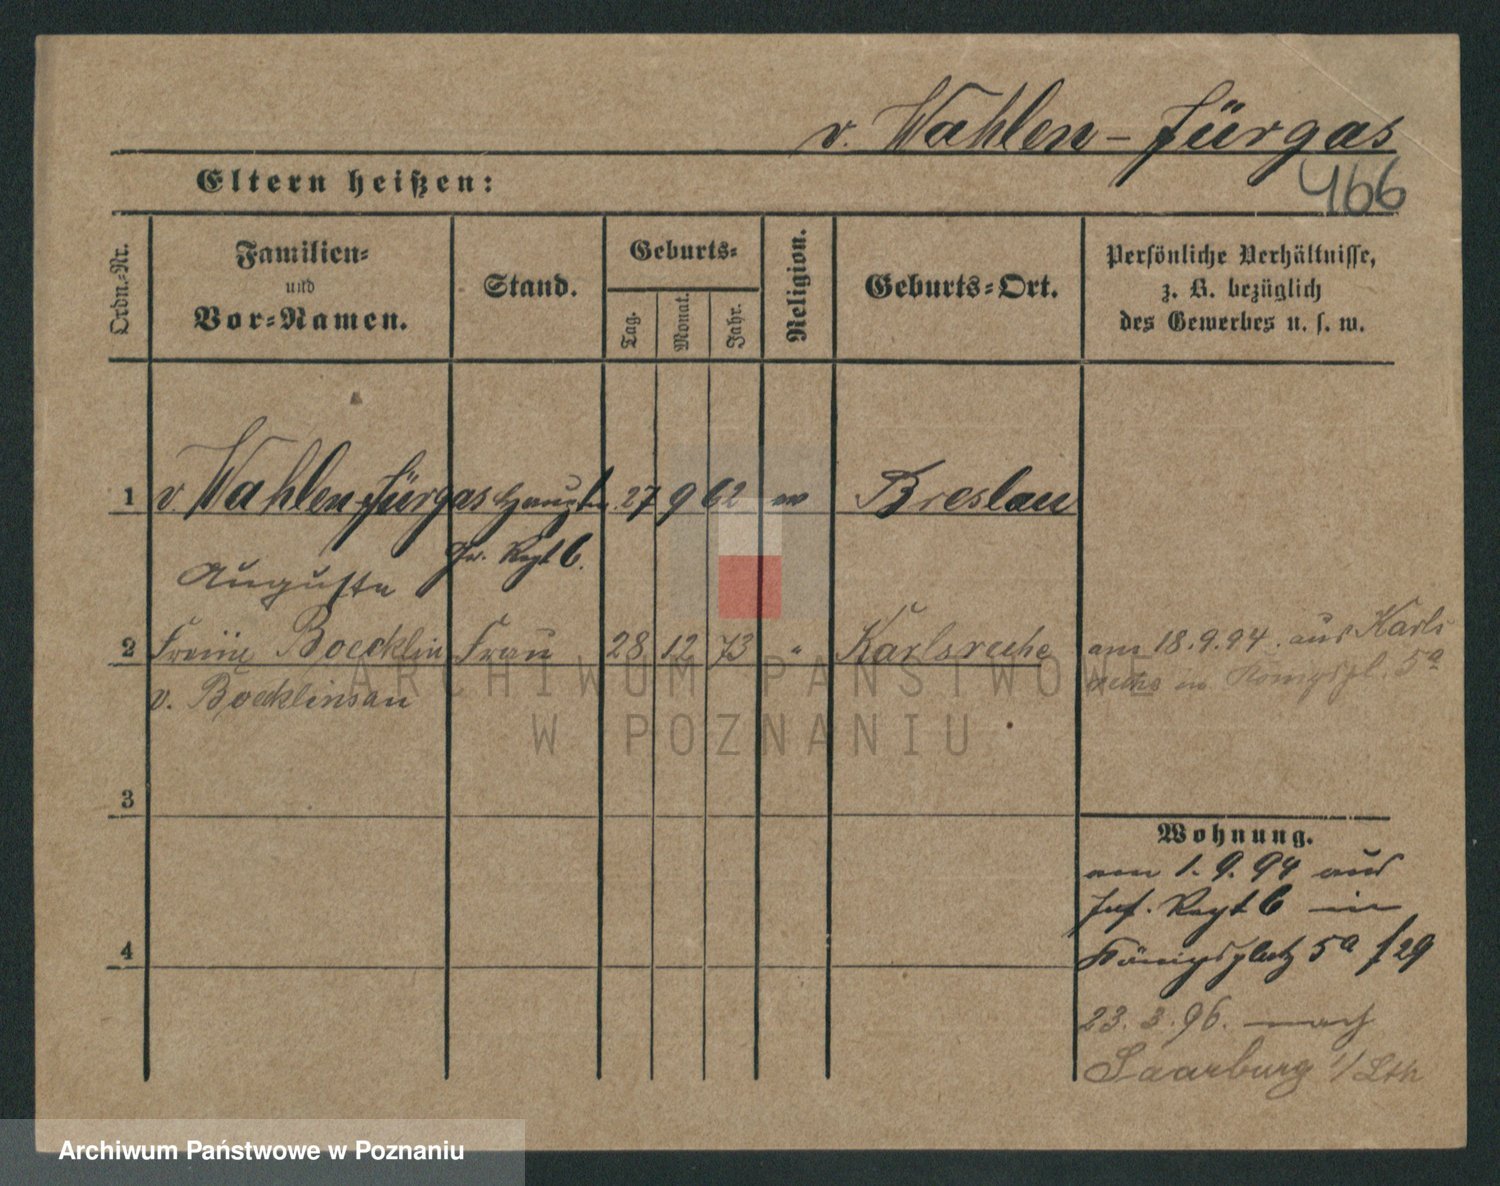 v. Wahlen-Jürgas
466
Eltern heißen:
Ordn.-Nr.
Familien-
und
Vor-Namen.
Stand.
Geburts-
Tag.
Monat.
Jahr.
Religion.
Geburts-Ort.
Persönliche Verhältnisse,
z. B. bezüglich
des Gewerbes u. s. w.
1 v. Wahlen-Jürgas Hauptm. 27 9 62 Breslau
Regt 6.
Auguste
2 Boecklin Frau 28 12 73 " Karlsruhe am 18.9.94. aus Karls
v. Boecklinsau
ruhe in Königspl. 5a
3
Wohnung.
am 1. 9. 94 aus
Inf. Regt 6 in
4
Königsplatz 5a f 29
23. 3. 96. nach
Saarburg i/Lth
ARCHIWUM PAŃSTWOWE
W POZNANIU
Archiwum Państwowe w Poznaniu